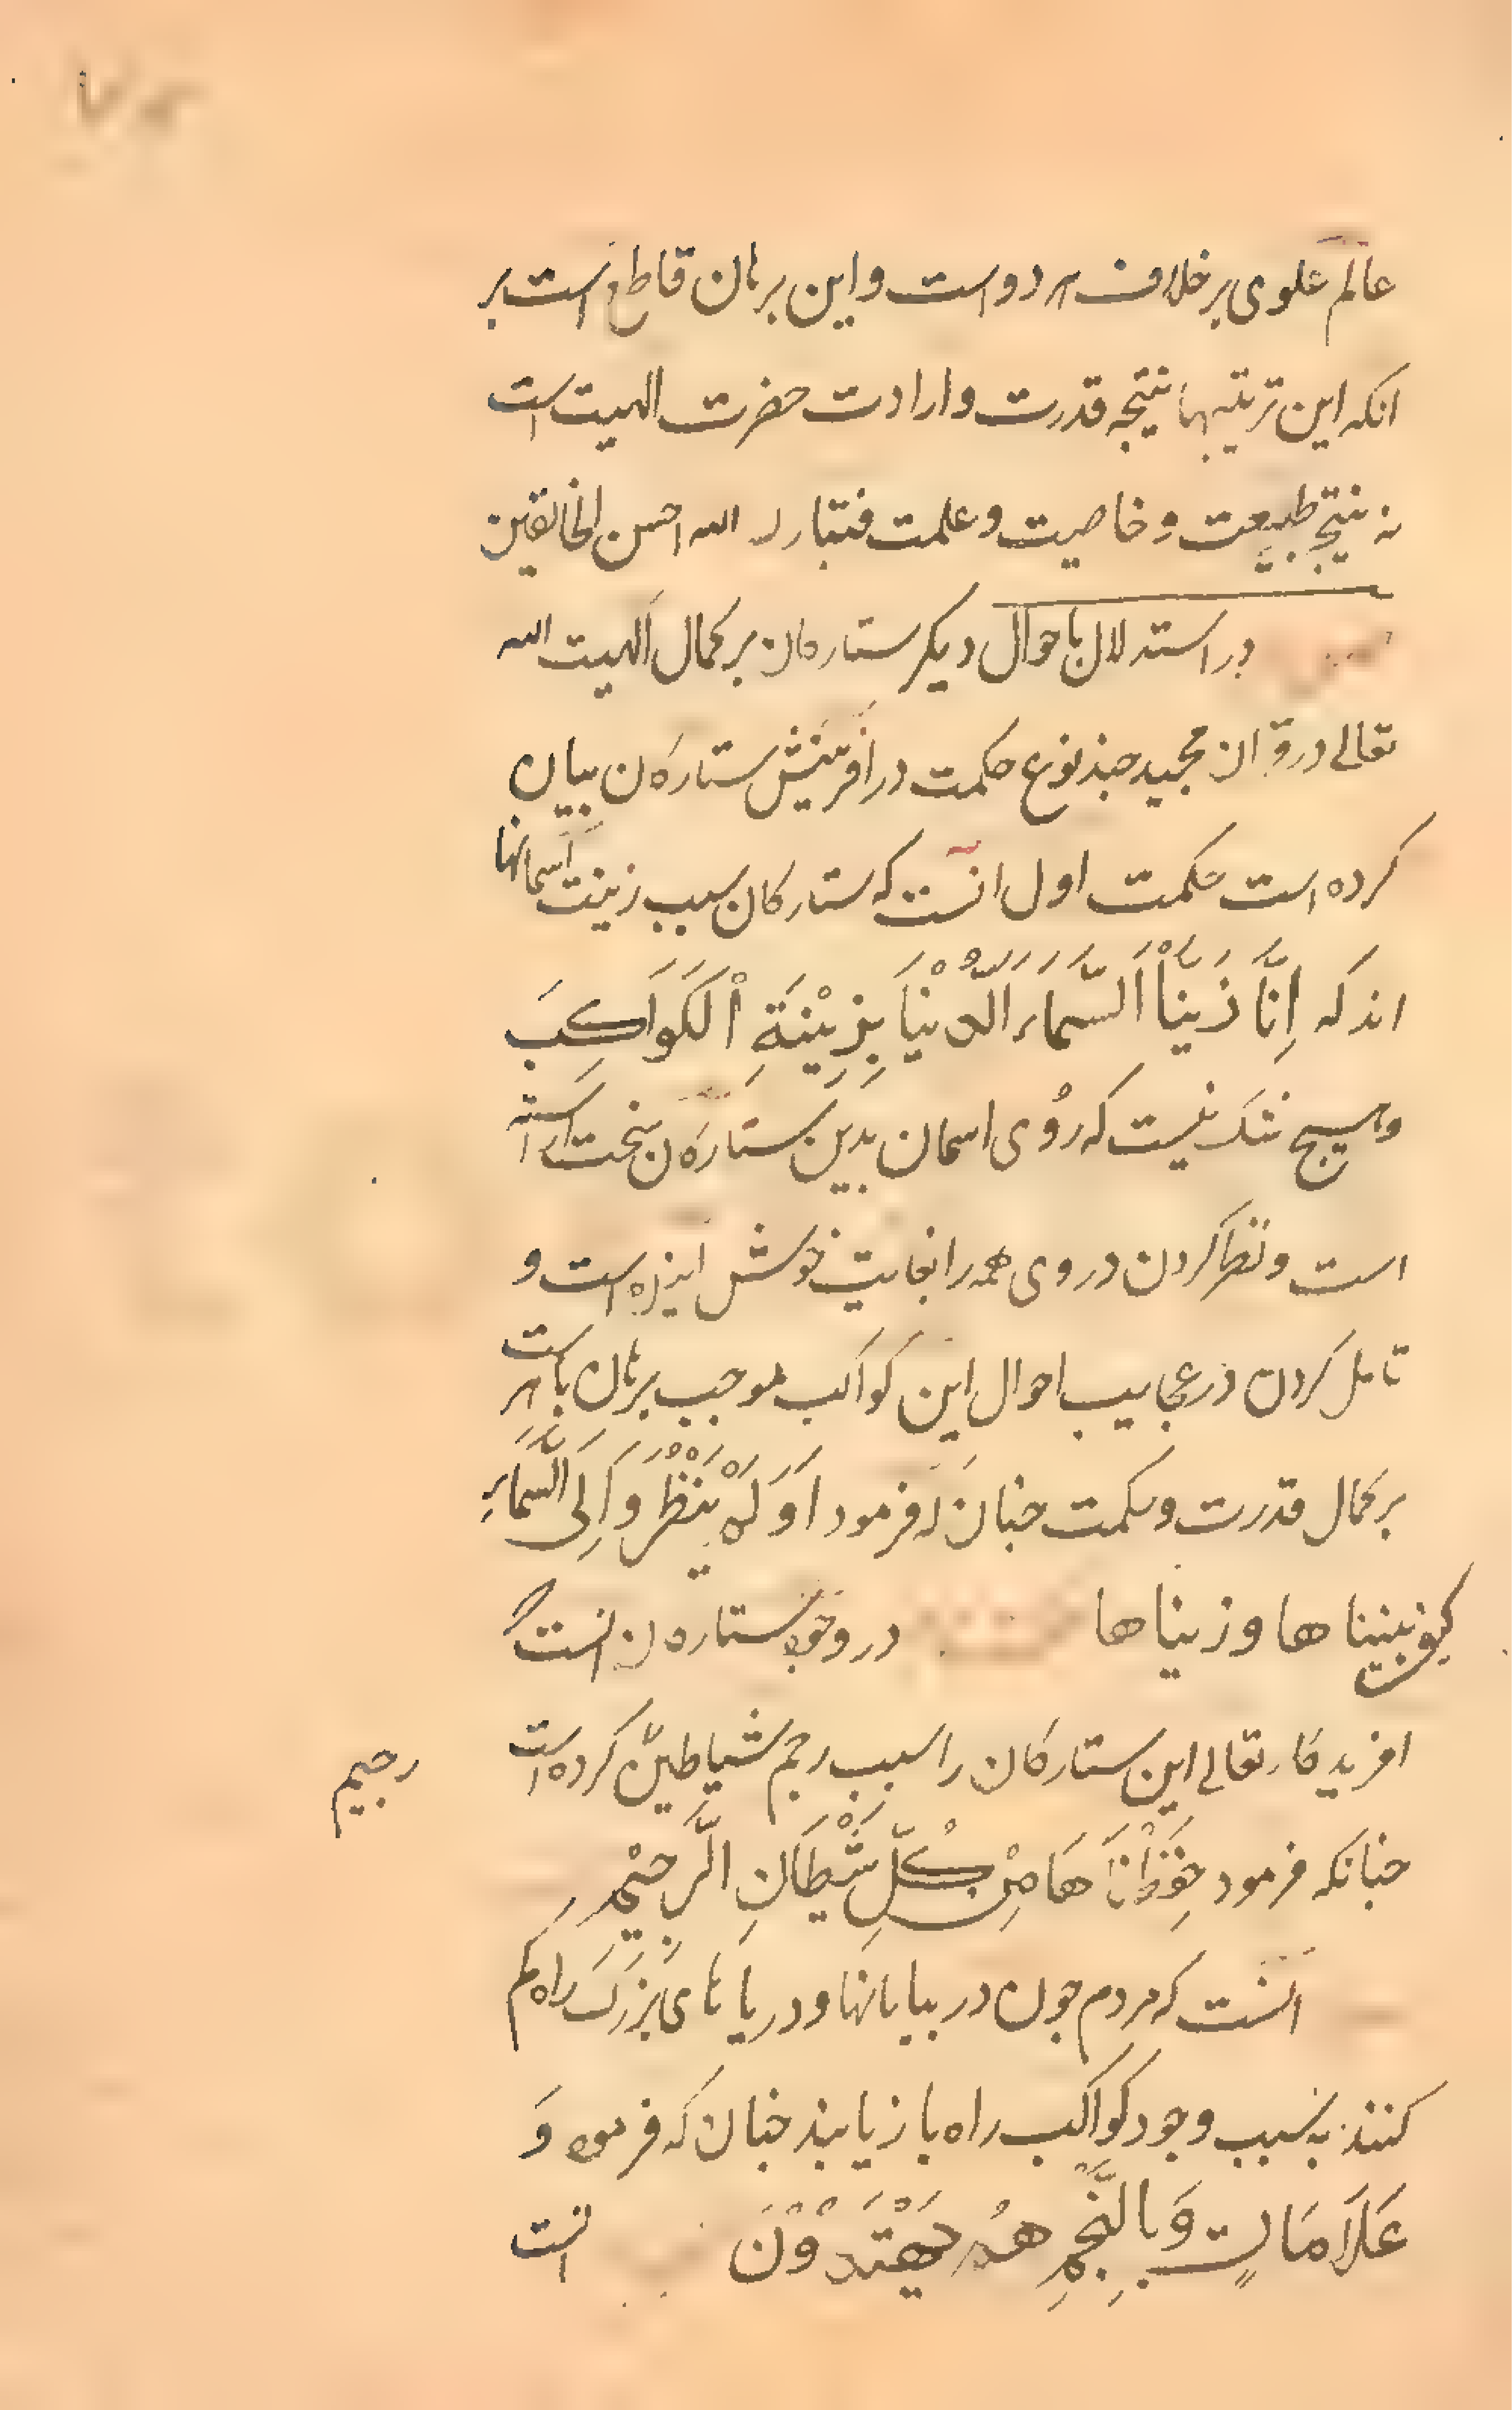 عالم علوی بر خلاف هر دو است و این برهان قاطع است بر
انکه این ترتیبها نتیجه قدرت و ارادت حضرت الهیت است
نه نتیجه طبیعت و خاصیت و علمت فتبارك الله احسن الخالقین
در استدلال باحوال دیکر ستارکان بر کمال الهیت الله
تعالی در قران مجید جند نوع حکمت در افرینش ستارکان بیان
کرده است حکمت اول انست که ستارکان سبب زینت اسمانها
اند که اِنَّا زَیَّنَّا اَلسَّمَاءَ الدُّنْیَا بِزِیْنَةِ اْلکَوَاکِبَ
و هیچ شک نیست که رُوی اسمان بدین ستارکان بنحت اراسته
است و نظر کردن در وی همه را بغایت خوش اینده است و
تامل کردن در عجایب احوال این کواکب موجب برهان باهر است
بر کمال قدرت و حکمت جنان که فرمود اَوَ لَمْ یَنْظُرُوا اِلَی السَّمَاءِ
کیف بنینا ها و زینا ها در وجود ستارکان انست که
افریدکار تعالی این ستارکان را سبب رجم شیاطین کرده است
رجیم
جنانکه فرمود حِفَظْنَا هَا مِنْ کُلِّ شَّیْطَانِ الرَّجِیْمِ
انست که مردم جون در بیابانها و دریا های بزرک راه کم
کنند به سبب وجود کواکب راه باز یابند جنان که فرموده وَ
عَلَامَاتٍ وَ بِالنَّجْمِ هُمْ یَهْتَدُوْنَ انست